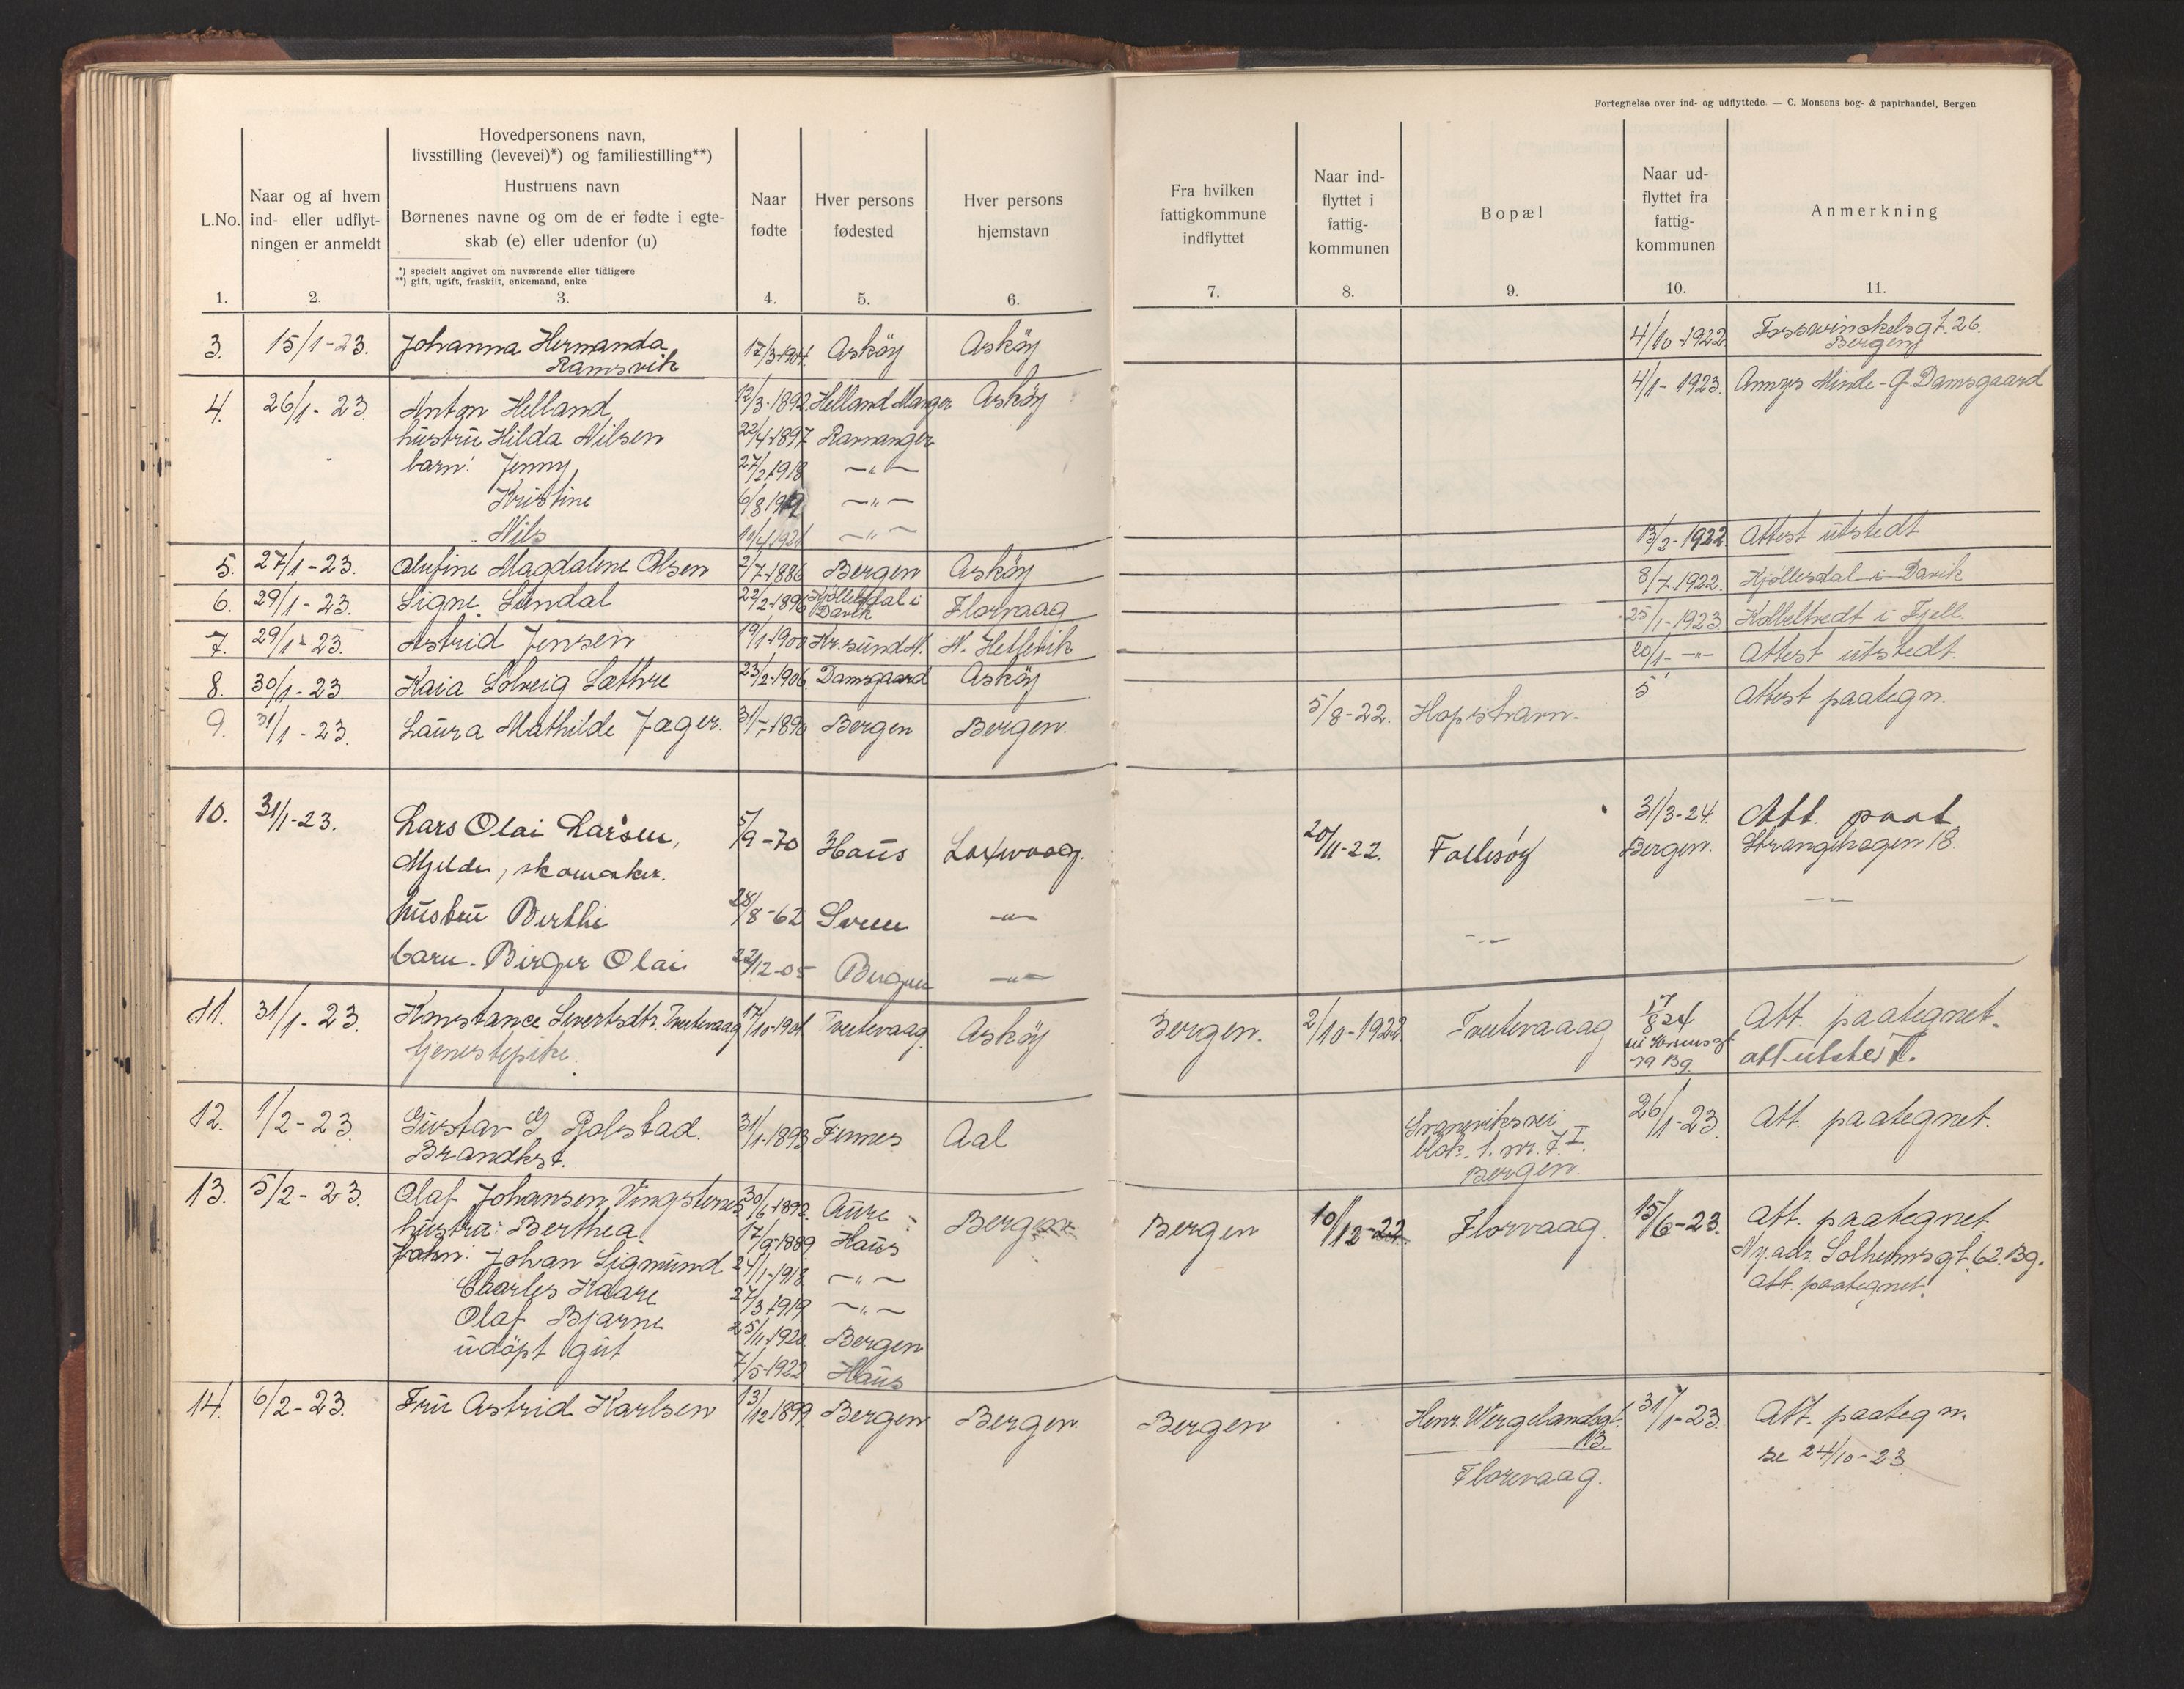 Fortegnelse over ind- og udflyttede. — C. Monsens bog- & papirhandel, Bergen
L.No.
Naar og af hvem
ind- eller udflyt-
ningen er anmeldt
Hovedpersonens navn,
livsstilling (levevei)*) og familiestilling**)
Hustruens navn
Børnenes navne og om de er fødte i egte-
skab (e) eller udenfor (u)
*) specielt angivet om nuværende eller tidligere
**) gift, ugift, fraskilt, enkemand, enke
Naar
fødte
Hver persons
fødested
Hver persons
hjemstavn
Fra hvilken
fattigkommune
indflyttet
Naar ind-
flyttet i
fattig-
kommunen
Bopæl
Naar ud-
flyttet fra
fattig-
kommunen
Anmerkning
1. 2. 3. 4. 5. 6. 7. 8. 9. 10. 11.
3. 15/1-23. Johanna Hermanda 17/3-1904 Asköy Asköy 4/10-1922 Fosswinckelsgt. 26.
Ramsvik Bergen
4. 26/1-23. Anton Helland 12/3-1892 Helland Manger Asköy 4/1-1923. Annys Minde - G. Damsgaard
hustru Hilda Nilsen 22/4-1897 Radöanger
barn: Jenny 27/2-1918 —"—
Kristine 6/8 1919 —"—
Nils 10/4-1921 —"—
5. 27/1-23. Olufine Magdalene Olsen 2/7-1886 Bergen Asköy 13/2-1922 Attest utstedt
6. 29/1-23. Signe Sundal 22/2-1896 Hjöllesdal i Davik Florvaag 8/7-1922. Hjöllesdal i Davik
7. 29/1-23. Astrid Jensen 19/1-1900 Kr.sund N. N. Hetlevik 25/1-1923. Kolbeltvedt i Fjell.
8. 30/1-23. Kaia Solveig Læthre 23/2-1906. Damsgaard Asköy 20/1- —"— Attest utstedt.
9. 31/1-23. Laura Mathilde Jæger. 31/-1890 Bergen Bergen. 5/8-22. Hopshavn. 5 Attest paategn.
10. 31/1-23. Lars Olai Larsen, 5/9-70 Haus Laxevaag. 20/11-22. Follesöy 31/3-24. Att. paat
Mjelde, skomaker. Bergen. Strangehagen 18.
hustru Berthe 28/8-62 Sveen —"—
barn. Birger Olai 22/12-05 Bergen —"—
11. 31/1-23. Konstance Sivertsdtr. Tveitevaag 17/10-1901 Tveitevaag. Asköy Bergen. 2/10-1922 Tveitevaag 17/8 24 Att. paategnet.
tjenestepike. 19 Bg. att utstedt.
12. 1/2-23. Gustav G Rolstad. 31/1-1893 Finnes Aal Svaneviksvei 26/1-23. Att. paategnet.
Brandkst. blok. 1. nr. 7. I.
Bergen.
13. 5/2-23. Olaf Johansen Vingsternes 30/6-1892. Aure Bergen Bergen 10/12-22. Florvaag. 15/6-23. Att. paategnet
hustru: Berthea 17/9-1889 Haus Ny. adr. Solheimsgt. 62. Bg.
barn: Johan Sigmund 24/1-1918 —"— att. paategnet.
Charles Kaare 27/3-1919 —"—
Olaf Bjarne 25/11-1920 Bergen
udöpt gut 7/5-1922 Haus
14. 6/2-23. Fru Astrid Karlsen 13/12 1899 Bergen Bergen Bergen Henr. Wergelandsgt. 31/1-23. Att. paategn.
13. se 24/10-23
Florvaag.